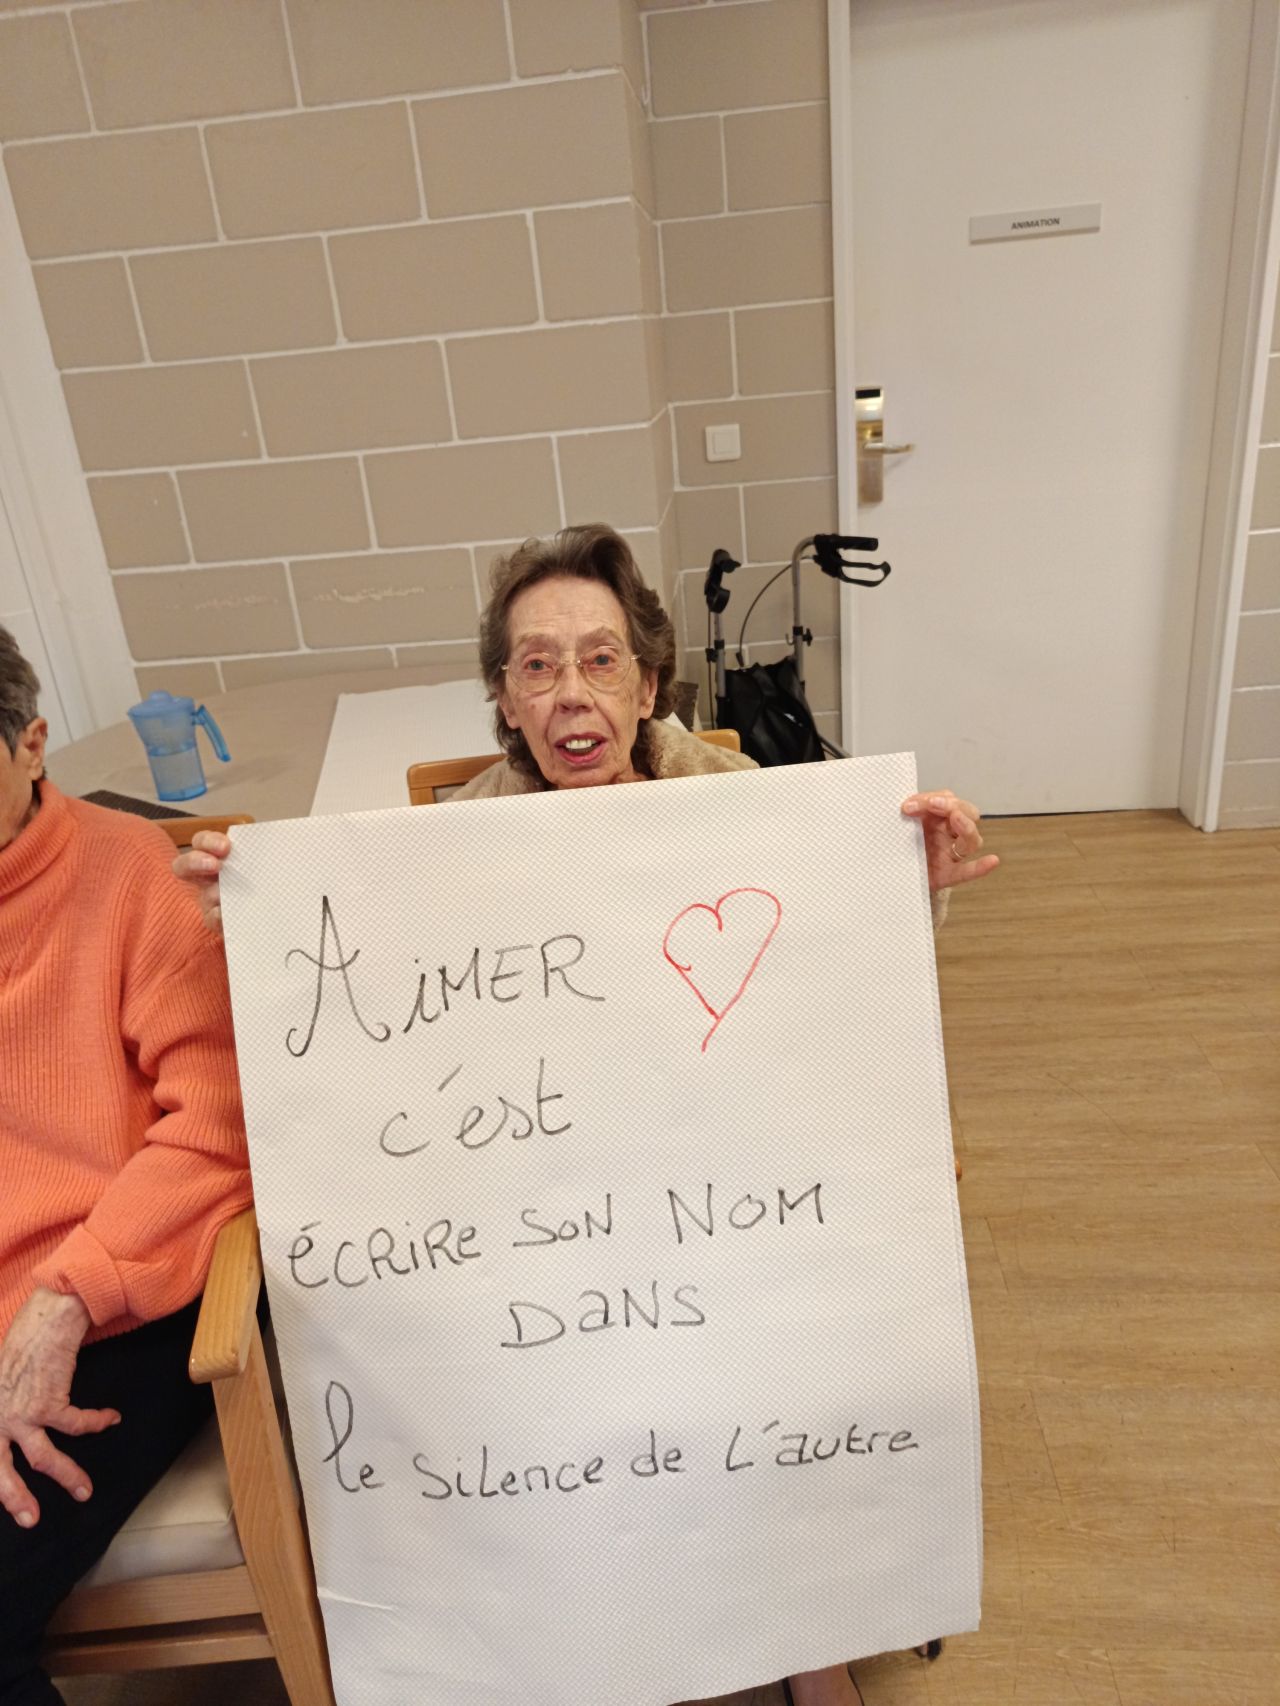 ANIMATION
AiMER
c'est
éCRiRe SON NOM
DaNS
le SiLence de L'autre